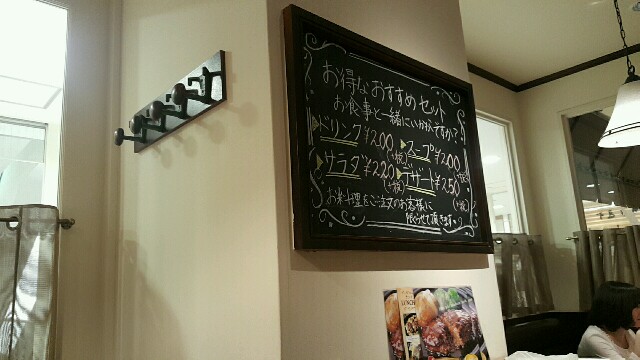 お得なおすすめセット
お食事と一緒にいかがですか?
ドリンク¥200 スープ¥200
(+税) (+税)
サラダ¥220 デザート¥250
(+税) (+税)
お料理をご注文のお客様に
限らせて頂きます
LUNCH